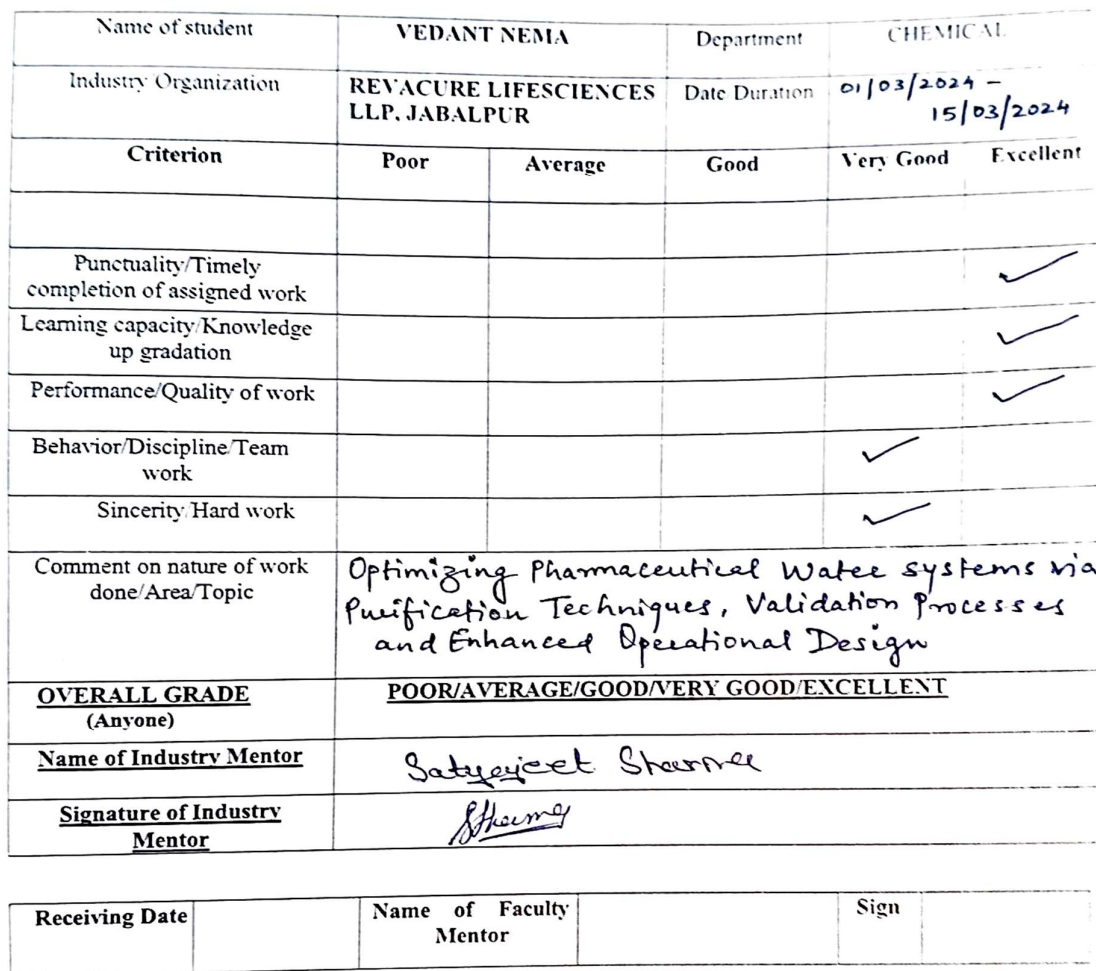 Name of student VEDANT NEMA Department CHEMICAL
Industry Organization REVACURE LIFESCIENCES Date Duration 01/03/2024 –
LLP, JABALPUR 15/03/2024
Criterion Poor Average Good Very Good Excellent
Punctuality/Timely
completion of assigned work ✓
Learning capacity/Knowledge
up gradation ✓
Performance/Quality of work ✓
Behavior/Discipline/Team
work ✓
Sincerity/Hard work ✓
Comment on nature of work
done/Area/Topic
Optimizing Pharmaceutical Water systems via
Purification Techniques, Validation Processes
and Enhanced Operational Design
OVERALL GRADE POOR/AVERAGE/GOOD/VERY GOOD/EXCELLENT
(Anyone)
Name of Industry Mentor Satyajeet Sharma
Signature of Industry
Mentor SSharma
Receiving Date Name of Faculty Sign
Mentor